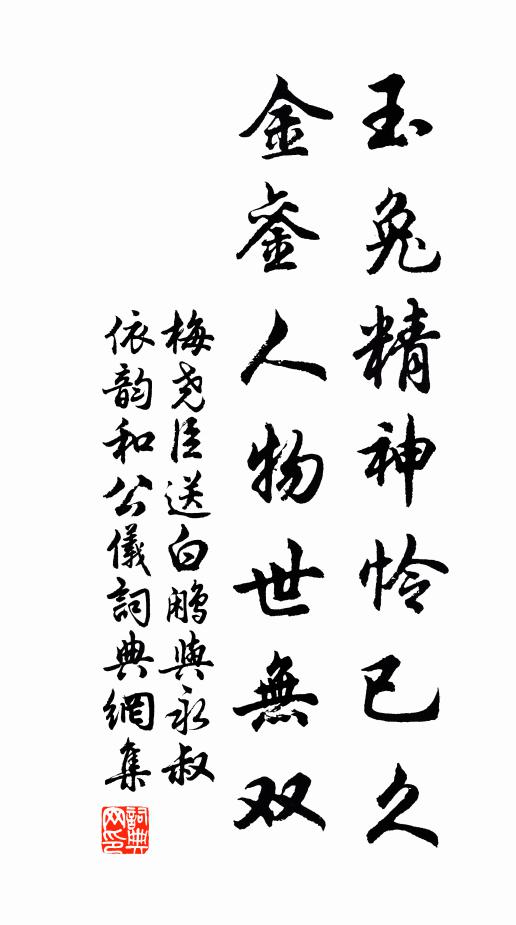 玉兔精神怜已久
金銮人物世無双
梅尧臣送白鹇與永叔
依韵和公儀詞典網集
詞典
网印